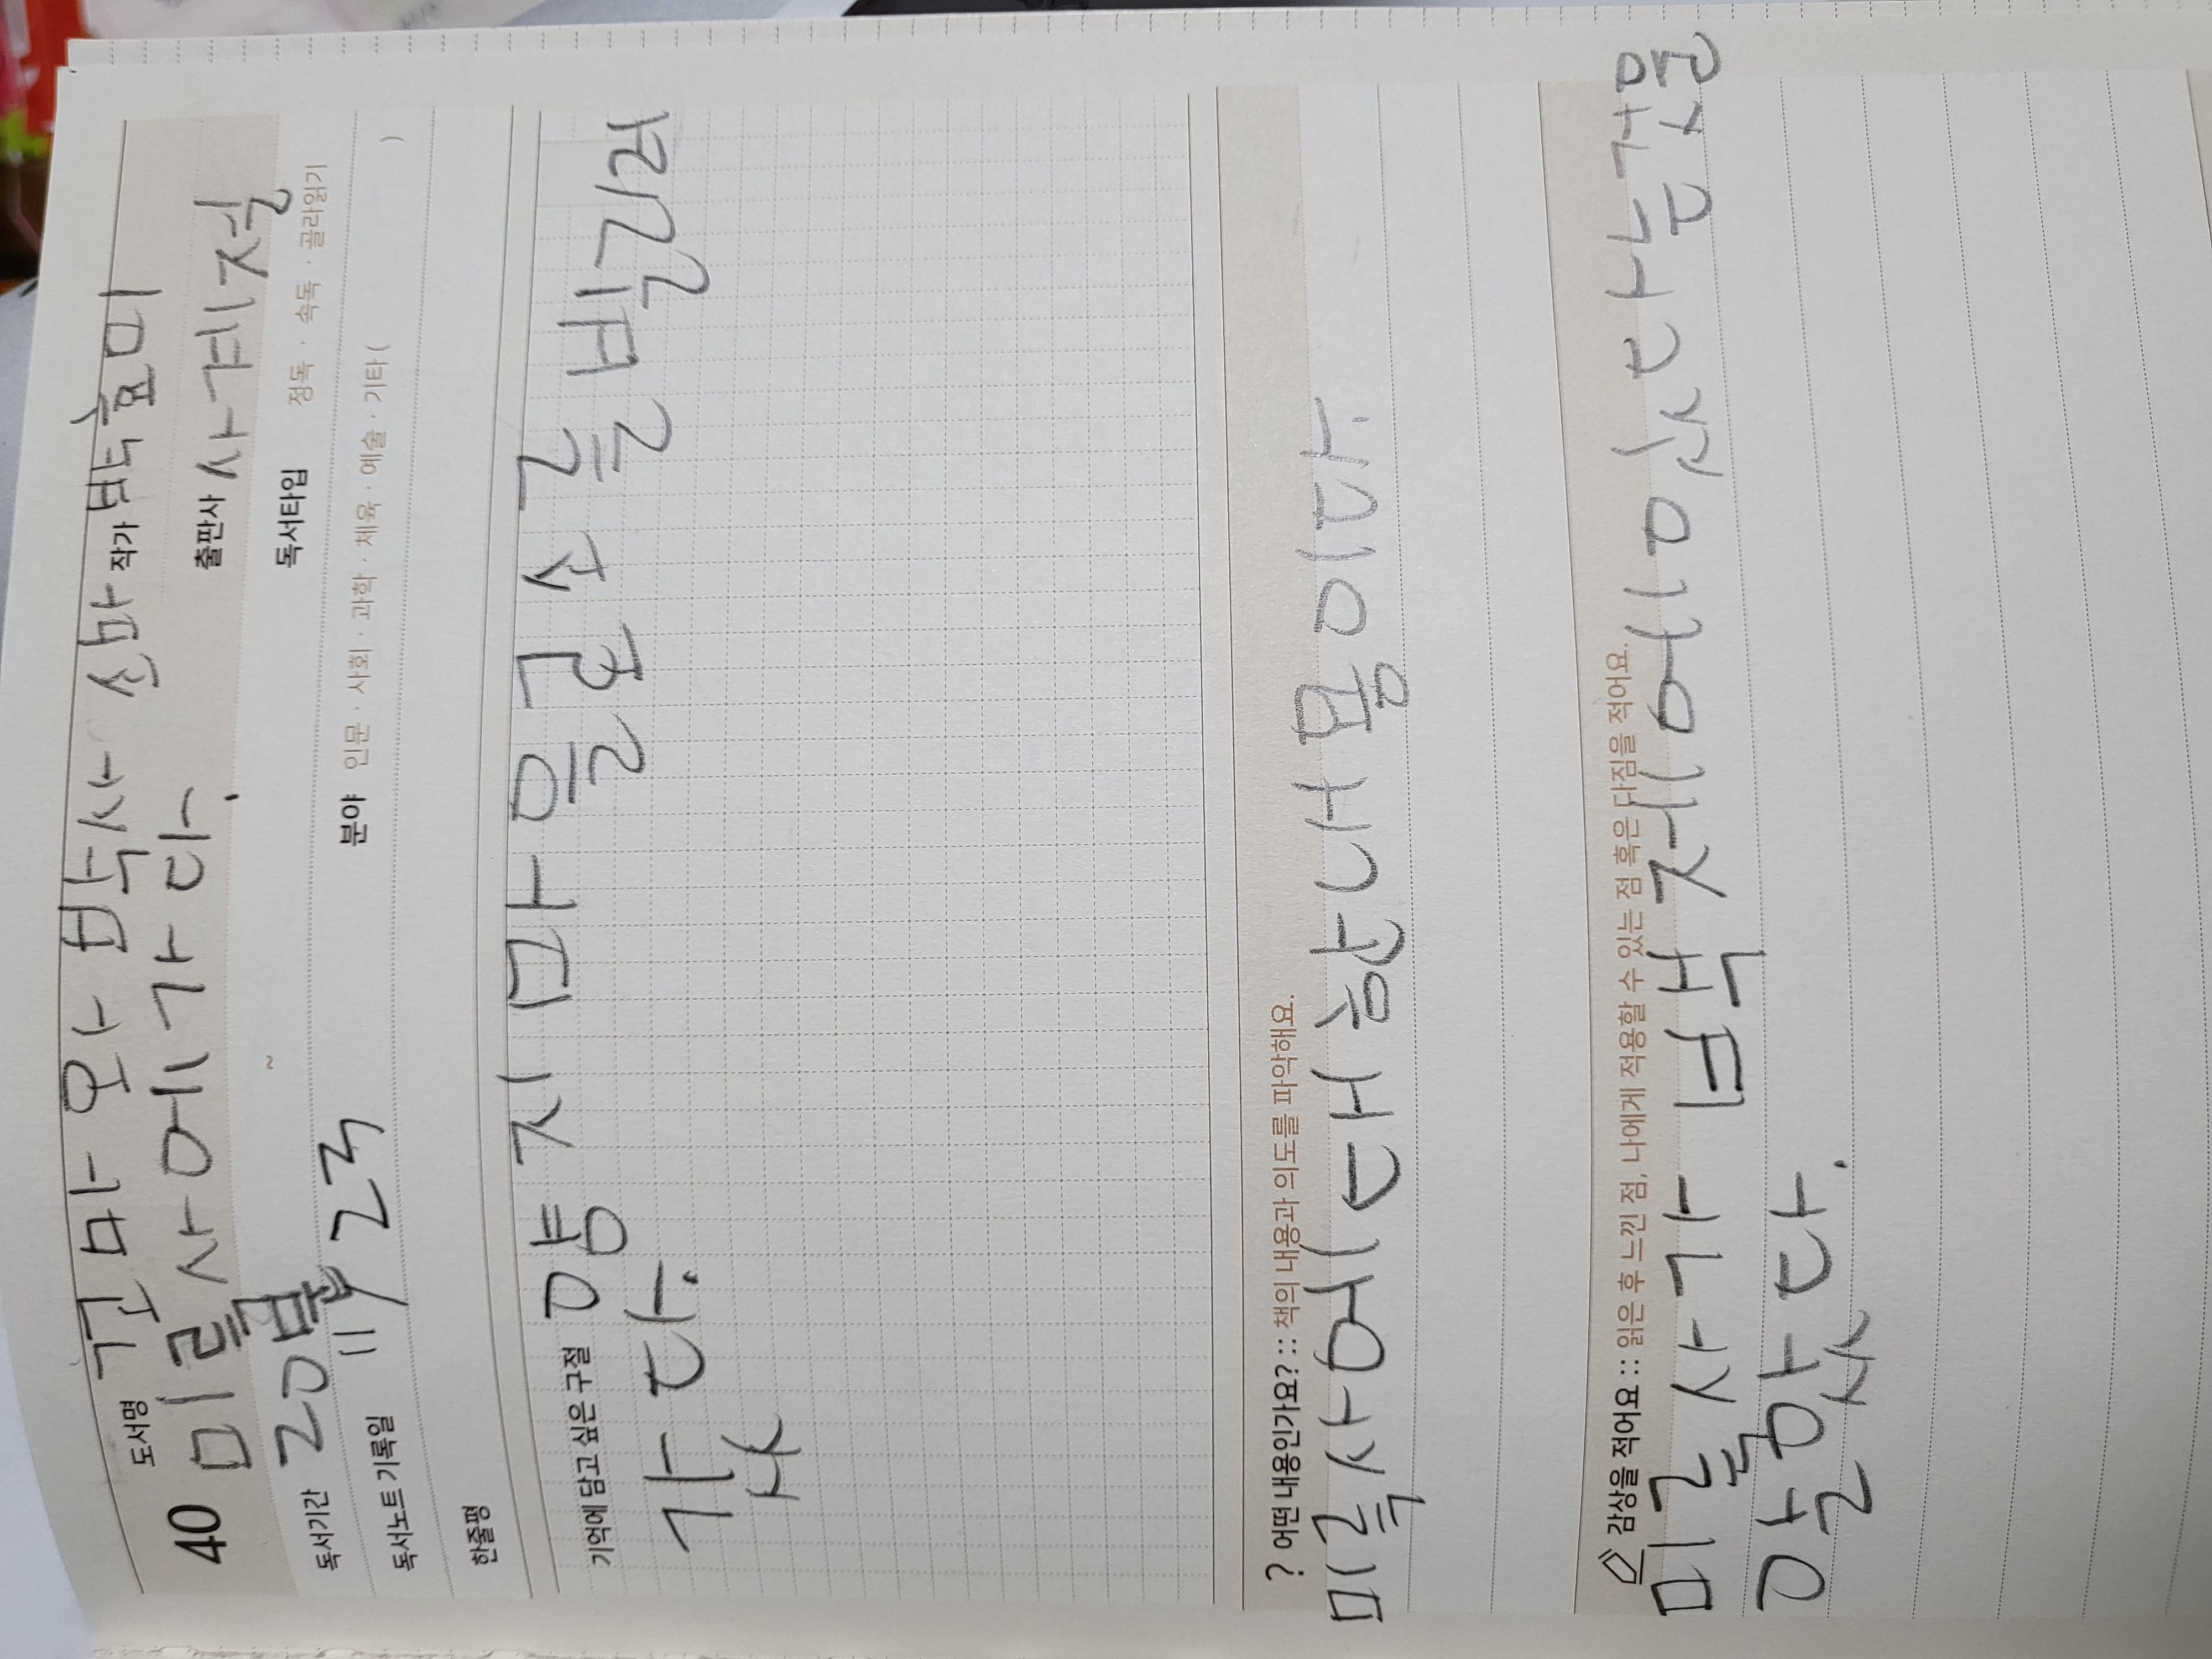 도서명 꼬마와 박사 소마 작가 박효미
40 미륵사에 가다.
출판사 사계절
독서기간 20분 ~ 독서타입 정독 · 속독 · 골라읽기
독서노트 기록일 11/23 분야 인문 · 사회 · 과학 · 체육 · 예술 · 기타 ( )
한줄평
기억에 담고 싶은 구절 양지 마을로 소를 빌리러
갔다.
? 어떤 내용인가요? :: 책의 내용과 의도를 파악해요.
미륵사에 대한 내용이다.
감상을 적어요 :: 읽은 후 느낀 점, 나에게 적용할 수 있는 점 혹은 다짐을 적어요.
미륵사가 백제에 있다는 것을
알았다.